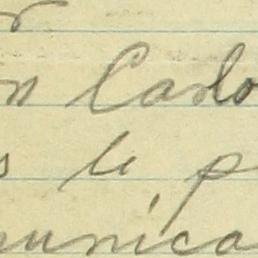 n Carlo
s le p
munica